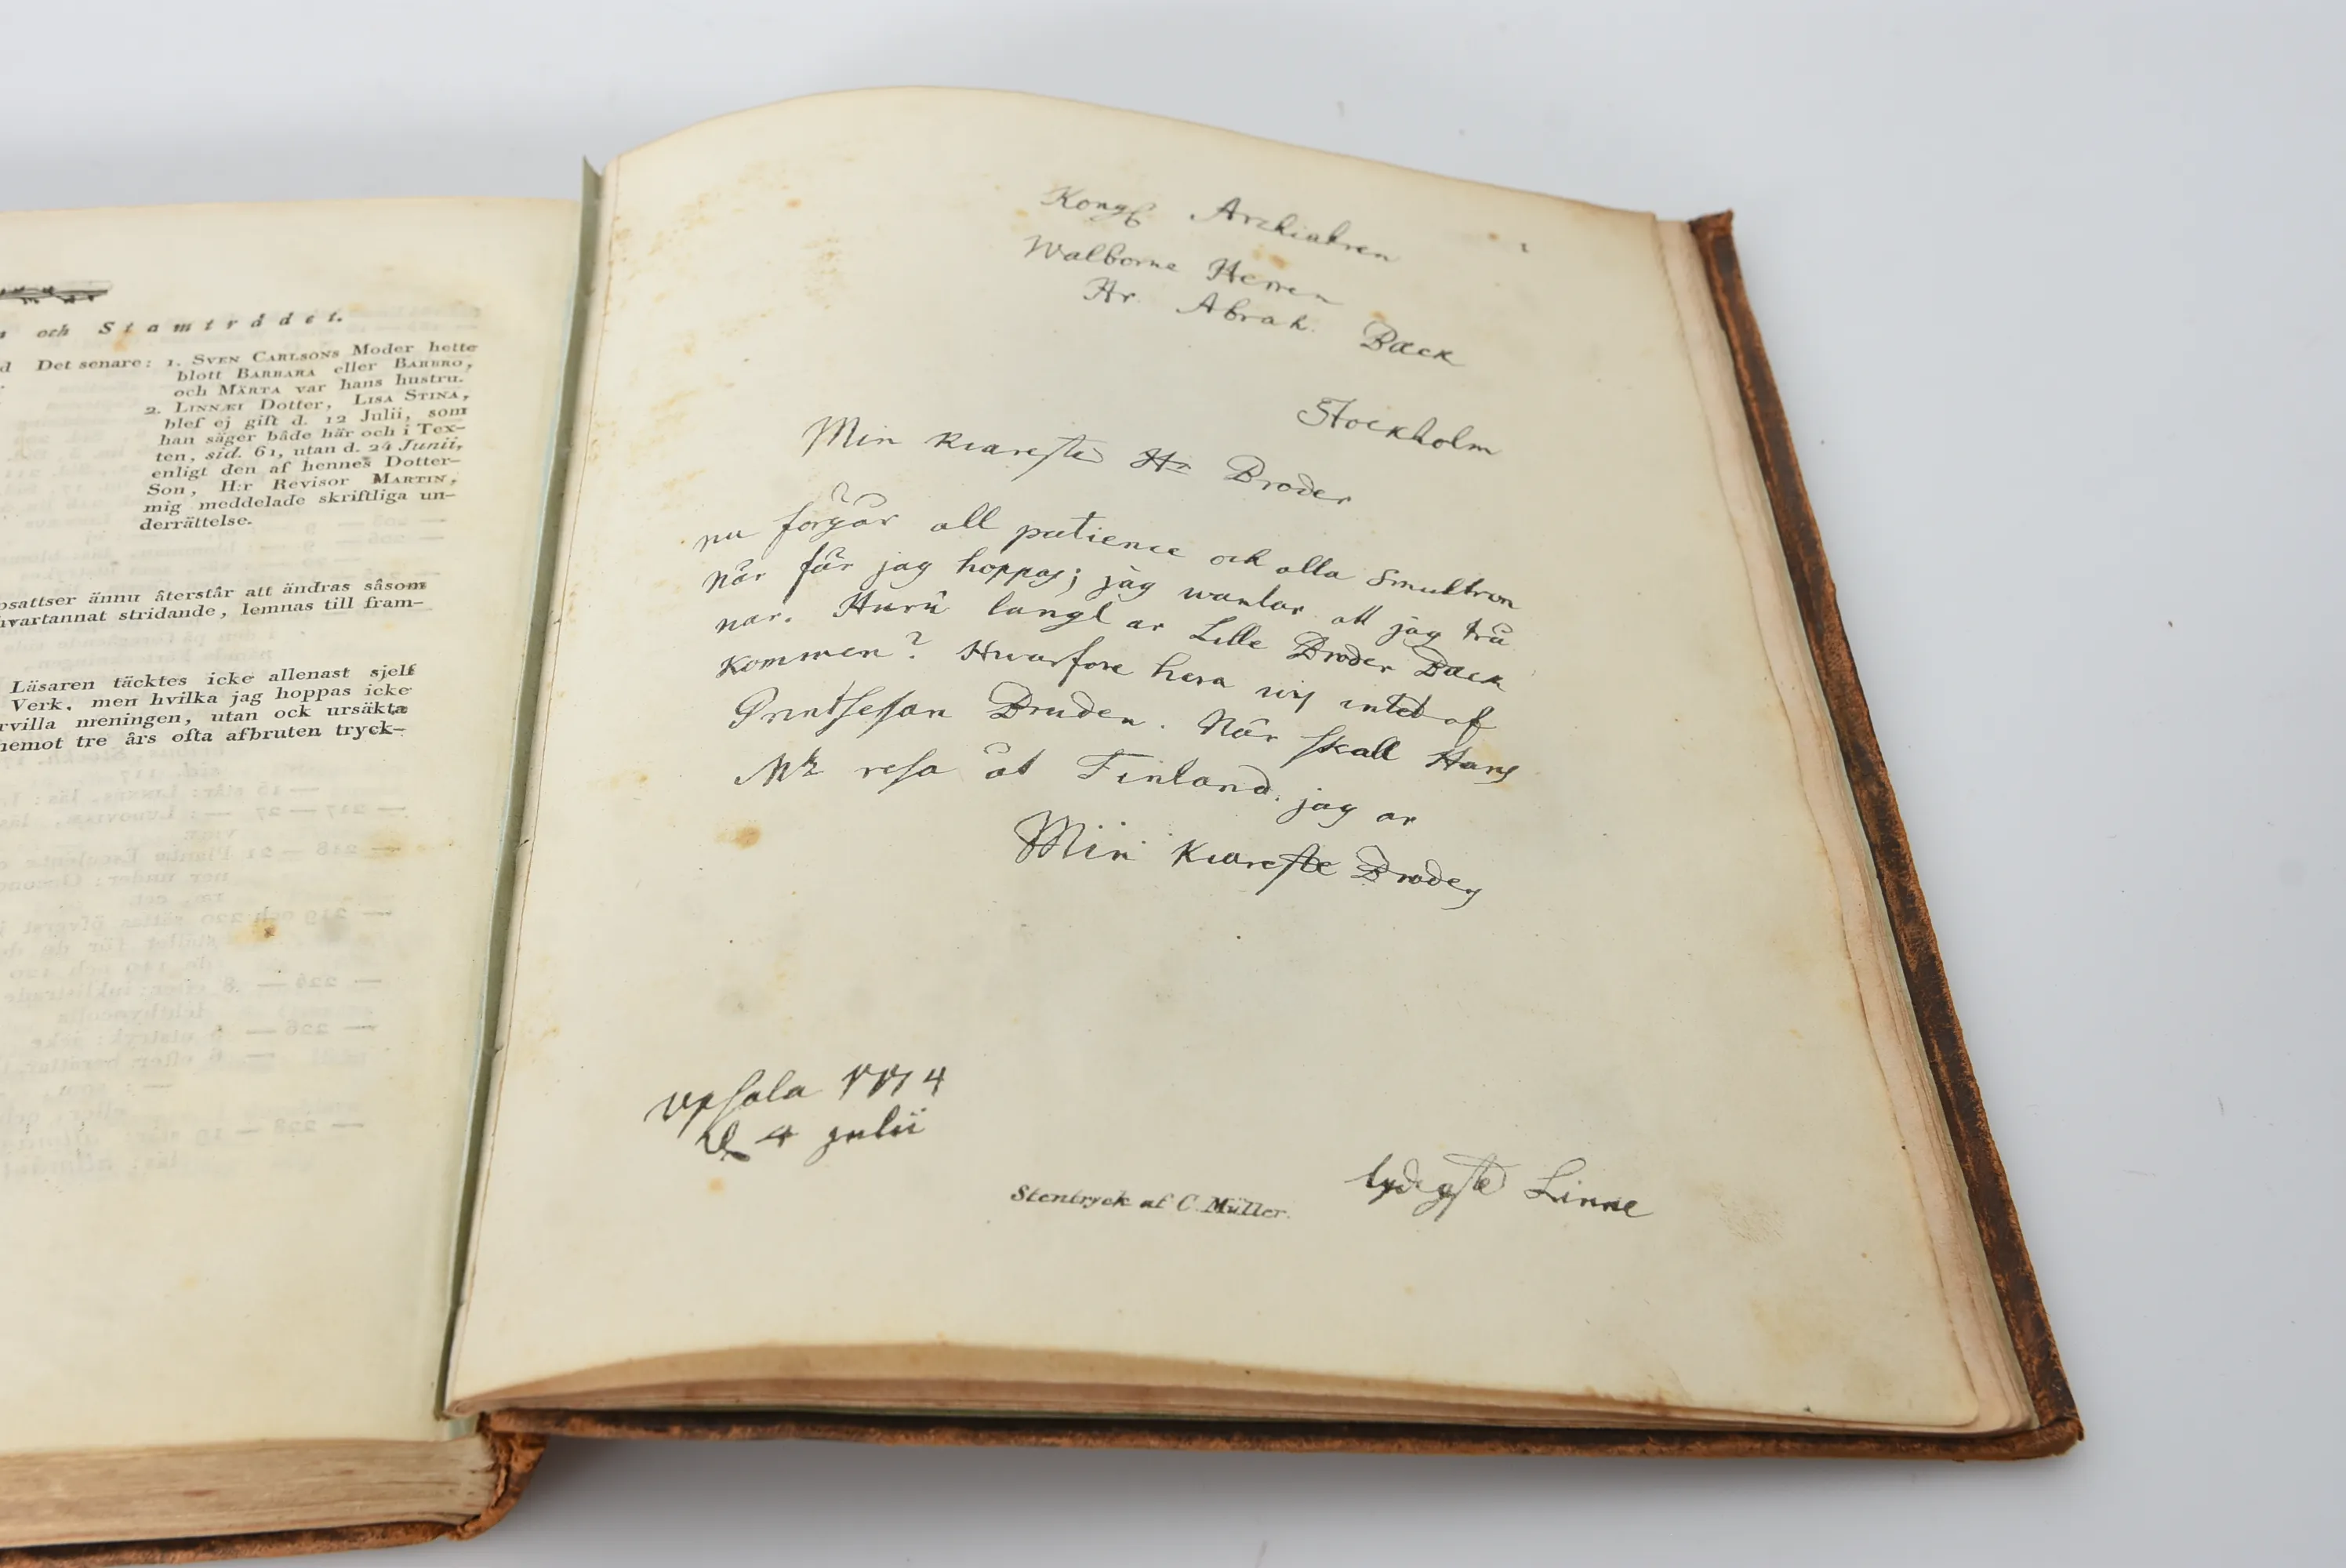 och Stamträdet.
Det senare: 1. SVEN CARLSONS Moder hette
blott BARBARA eller BARBRO,
och MÄRTA var hans hustru.
2. LINNÆI Dotter, LISA STINA,
blef ej gift d. 12 Julii, som
han säger både här och i Tex-
ten, sid. 61, utan d. 24 Junii,
enligt den af hennes Dotter-
Son, H:r Revisor MARTIN,
mig meddelade skriftliga un-
derrättelse.
ännu återstår att ändras såsom
stridande, lemnas till fram-
Läsaren täcktes icke allenast sjelf
Verk, men hvilka jag hoppas icke
meningen, utan ock ursäkta
tre års ofta afbruten tryck-
Kongl Archiatren
Walborne Herren
Hr. Abrah. Bæck
Stockholm
Min kiareste Hr Broder
nu förgår all patience och alla Smultron
når får jag hoppas; jag wantar att jag trå
nar. Huru langt ar Lille Broder Bæck
kommen? Hwarfore hora wij intet af
Printsessan Bruden. Når skall Hans
Mt resa åt Finland. jag ar
Min kiareste Broders
Upsala 1774
d 4 Julii
lydigste Linne
Stentryck af C. Müller.